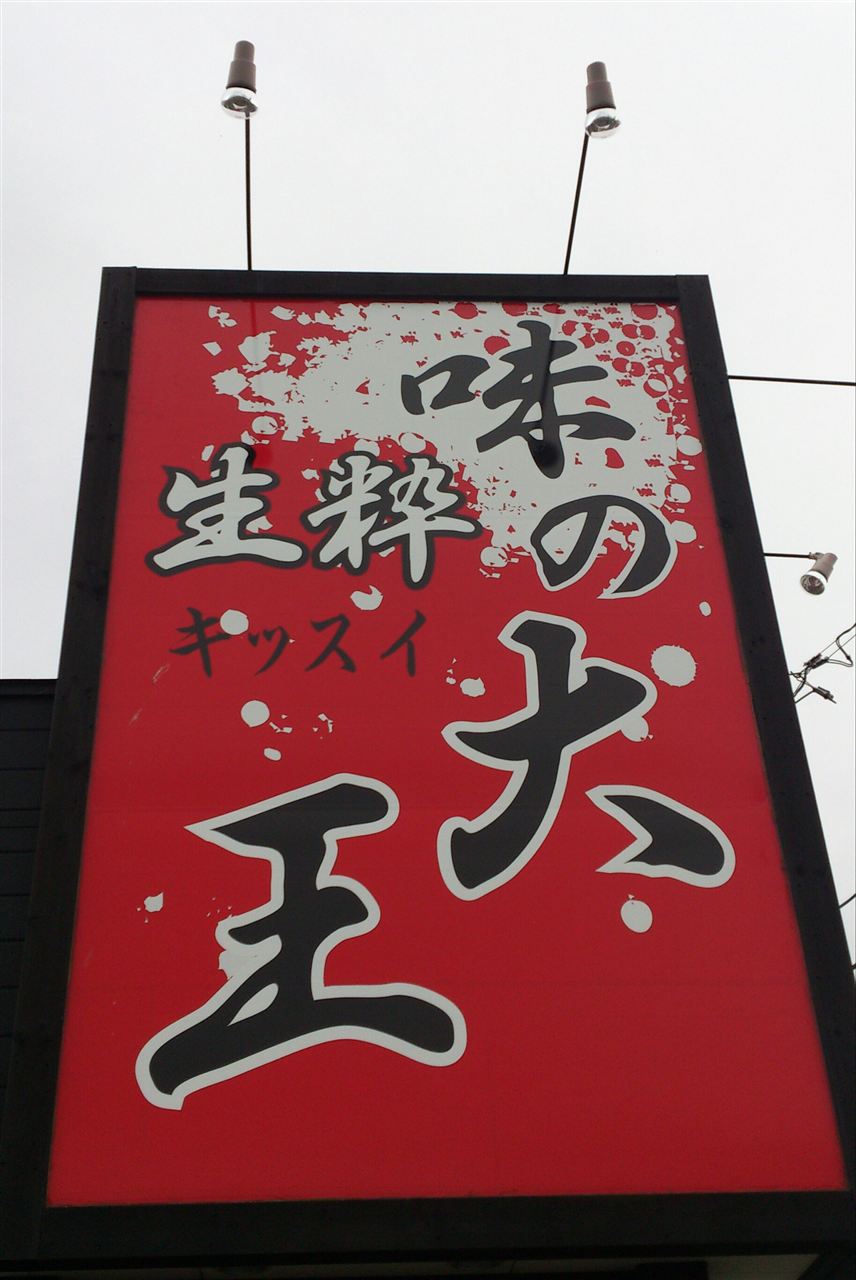 味の大王
生粋
キッスイ